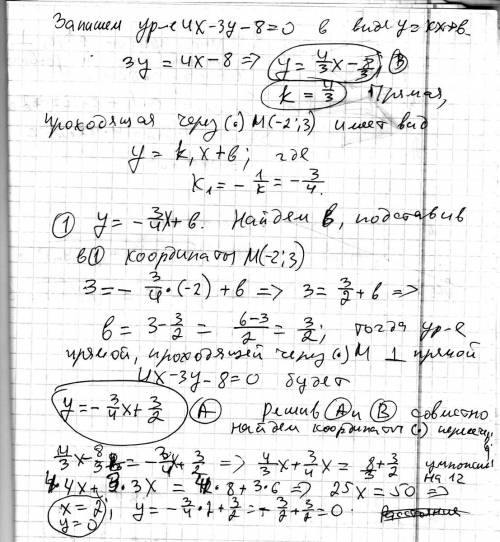 Запишем ур-е 4x-3y-8=0 в виде y=kx+b.
3y = 4x-8 => y = 4/3 x - 8/3, (B)
k = 4/3 Прямая,
проходящая через (•) M(-2;3) имеет вид
y = k₁x+b; где
k₁ = -1/k = -3/4.
(1) y = -3/4 x + b. Найдем b, подставив
в (1) координаты M(-2;3)
3 = -3/4 • (-2) + b => 3 = 3/2 + b =>
b = 3 - 3/2 = (6-3)/2 = 3/2; тогда ур-е
прямой, проходящей через (•) M ⊥ прямой
4x-3y-8=0 будет
y = -3/4 x + 3/2 (A) Решив (A) и (B) совместно
найдем координаты (•) пересеч.
4/3 x - 8/3 = -3/4 x + 3/2 => 4/3 x + 3/4 x = 8/3 + 3/2 умножим на 12
4•4x + 3•3x = 4•8 + 3•6 => 25x = 50 =>
x = 2, y = -3/4 • 2 + 3/2 = -3/2 + 3/2 = 0
y = 0